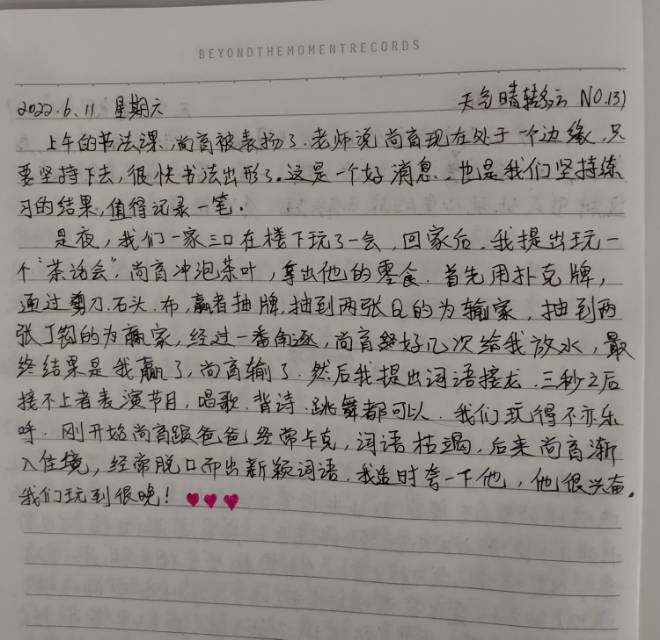 BEYONDTHEMOMENTRECORDS
2022.6.11 星期六 天气晴转多云 NO.131
上午的书法课,尚育被表扬了.老师说尚育现在处于一个边缘,只
要坚持下去,很快书法出形了。这是一个好消息.也是我们坚持练
习的结果,值得记录一笔.
是夜,我们一家三口在楼下玩了一会,回家后.我提出玩一
个"茶话会",尚育冲泡茶叶,拿出他的零食.首先用扑克牌,
通过剪刀.石头.布,赢者抽牌,抽到两张Q的为输家,抽到两
张丁钩的为赢家,经过一番角逐,尚育好几次给我放水,最
终结果是我赢了,尚育输了.然后我提出词语接龙.三秒之后
接不上者表演节目,唱歌.背诗.跳舞都可以.我们玩得不亦乐
呼.刚开始尚育跟爸爸经常卡克,词语枯竭,后来尚育渐
入佳境,经常脱口而出新颖词语.我适时夸一下他,他很兴奋。
我们玩到很晚!